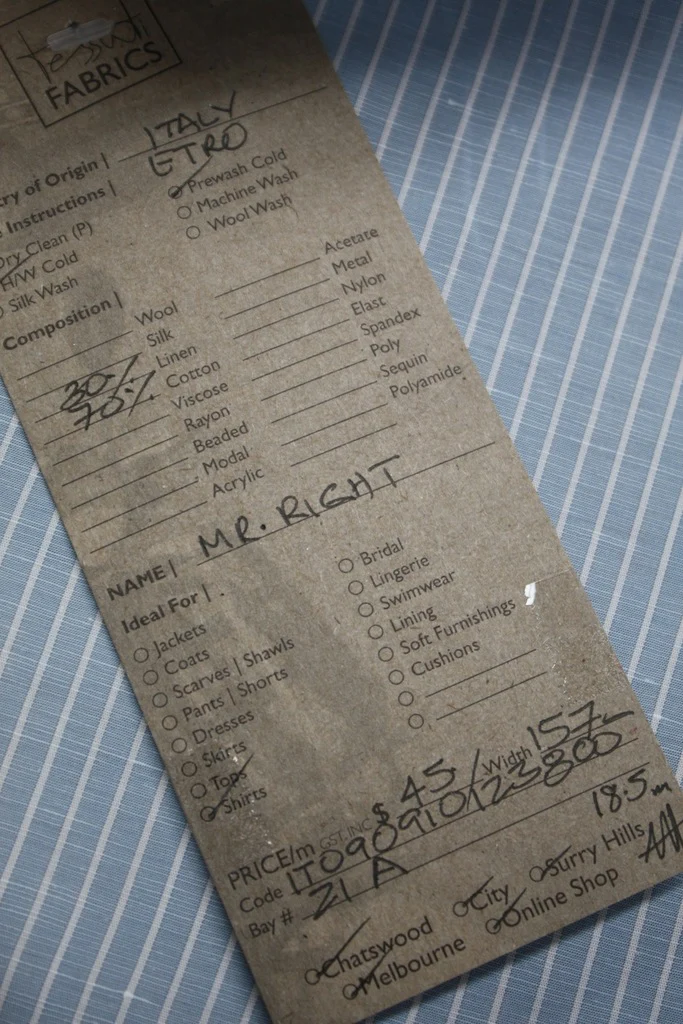 Tessuti
FABRICS
try of Origin | ITALY
ETRO
Instructions |
Prewash Cold
Machine Wash
Wool Wash
Dry Clean (P)
H/W Cold
Silk Wash
Composition |
Wool
Silk
30% Linen
70% Cotton
Viscose
Rayon
Beaded
Modal
Acrylic
Acetate
Metal
Nylon
Elast
Spandex
Poly
Sequin
Polyamide
NAME | MR. RIGHT
Ideal For |
Jackets
Coats
Scarves | Shawls
Pants | Shorts
Dresses
Skirts
Tops
Shirts
Bridal
Lingerie
Swimwear
Lining
Soft Furnishings
Cushions
PRICE/m GST.INC $ 45 / Width 157
Code IT090910123800
Bay # 21 A 18.5m
Chatswood City Surry Hills
Melbourne Online Shop